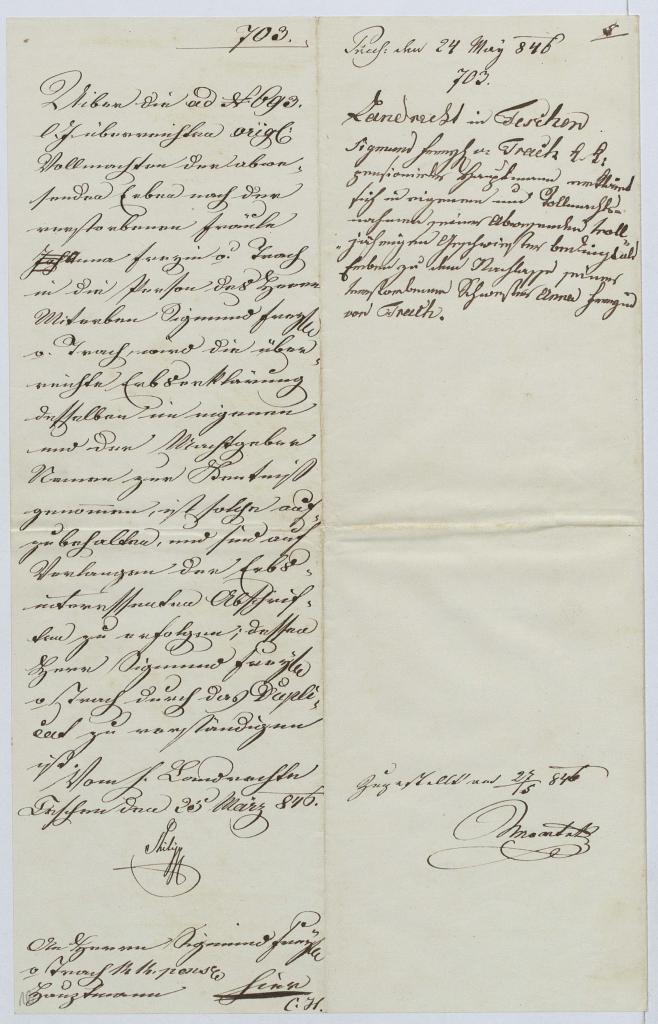 703.
Uiber die ad N 693.
l. J. überreichten origl:
Vollmachten der abwe-
senden Erben nach der
verstorbenen Fräule
Anna Freyin v. Trach
in die Person des Herrn
Miterben Sigmund Freyh
v. Trach, wird die über-
reichte Erbserklärung
desselben im eigenen
und der Machtgeber
Namen zur Kentniß
genommen, ist solche auf-
zubehalten, und sind auf
Verlangen der Erbs-
interessenten Abschrif-
ten zu erfolgen; dessen
Herr Sigmund Freyh
v Trach durch das Dupli-
cat zu verständigen
ist.
Vom k. Landrechte
Teschen den 25 März 846.
Philipp
An Herrn Sigmund Freyh
v Trach k k pens
Hauptmann hier
C. H.
8
Präs: den 24 May 846
703.
Landrecht in Teschen
Sigmund Freyh v: Trach k. k.
pensionirter Hauptmann erklärt
sich in eigenen und Vollmachts-
nahmen seiner Abwesenden voll-
jährigen Geschwister bedingt als
Erben zu dem Nachlasse seiner
verstorbenen Schwester Anna Freyin
von Trach.
Zugestellt am 27/5 846